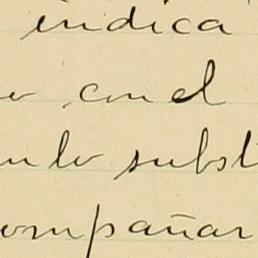 indica
con el
subst
ompañar